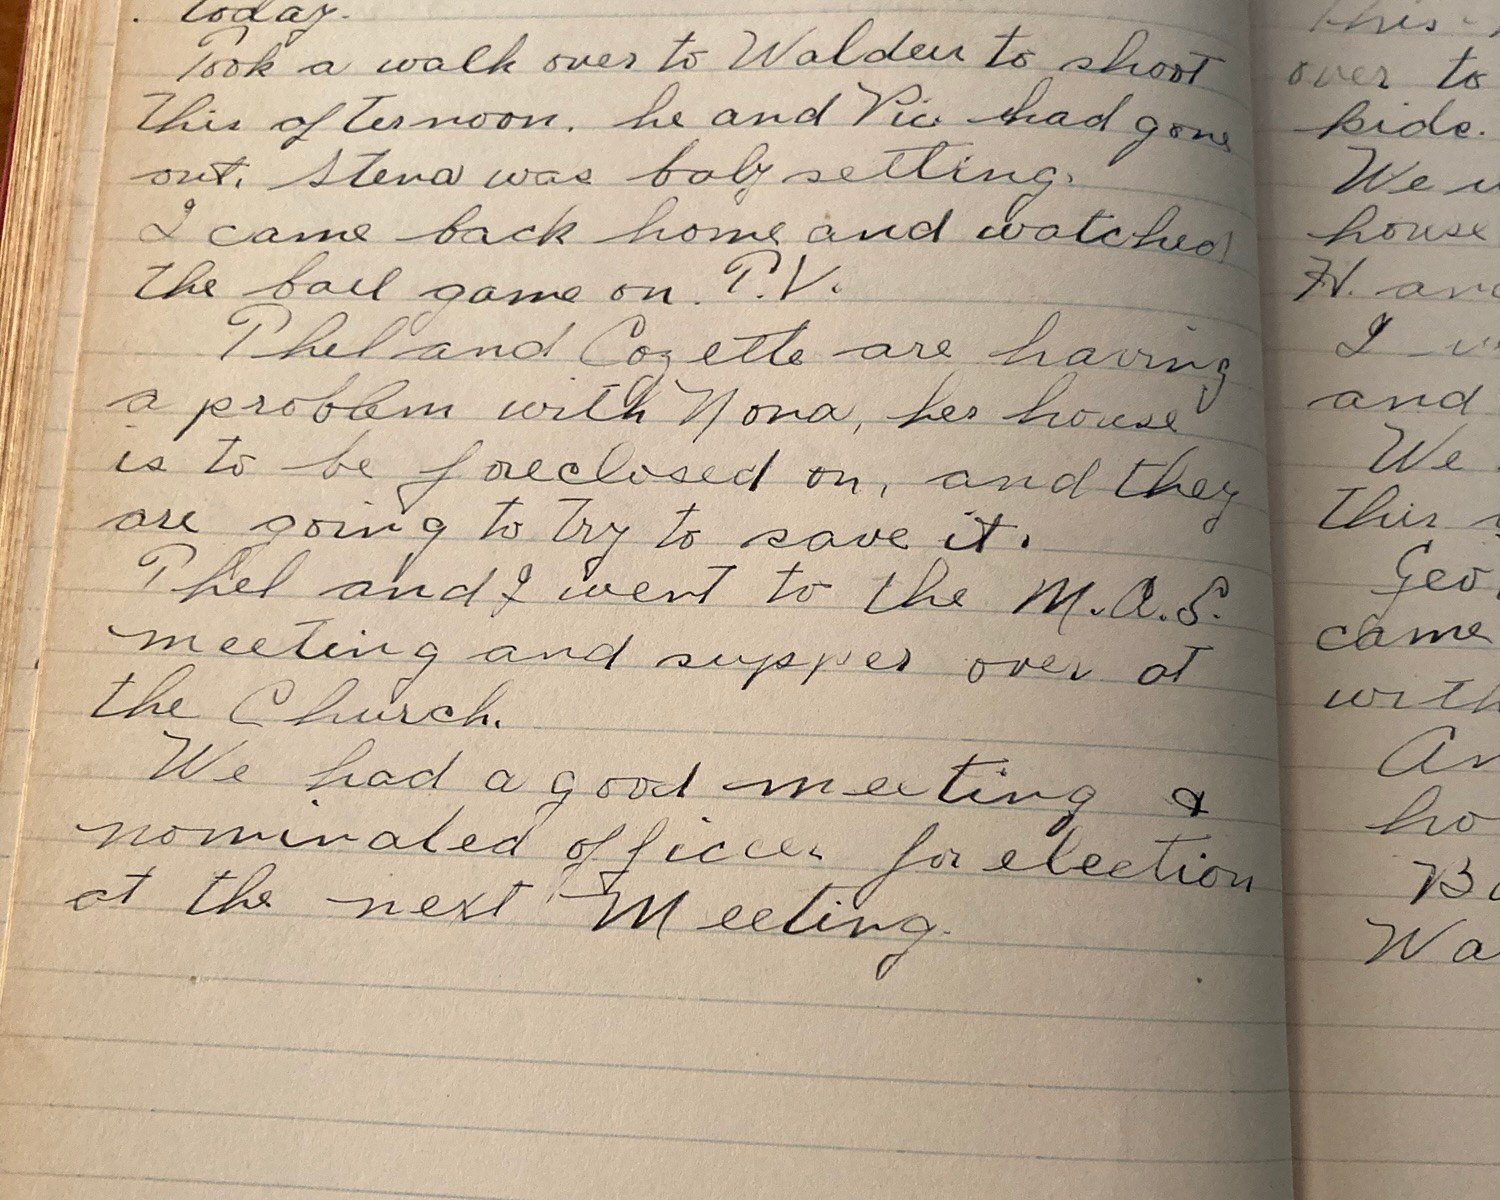 . today.
Took a walk over to Walden to shoot
this afternoon. he and Vic had gone
out. Stena was baby setting.
I came back home and watched
the ball game on T.V.
Phel and Cozette are having
a problem with Nona, her house
is to be foreclosed on, and they
are going to try to save it.
Phel and I went to the M.A.S.
meeting and supper over at
the Church.
We had a good meeting &
nominated officers for election
at the next Meeting.
This
over to
kids.
We
house
H. and
I
and
We
this
Geo.
came
with
An
ho
Ba
Wa